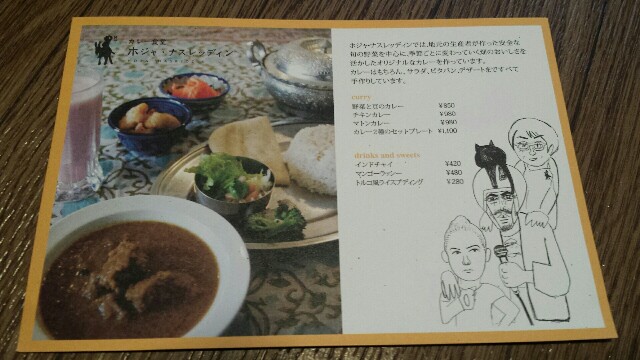 カレー食堂
ホジャ・ナスレッディン
ホジャ・ナスレッディンでは、地元の生産者が作った安全な
旬の野菜を中心に、季節ごとに変わっていく畑のおいしさを
活かしたオリジナルなカレーを作っています。
カレーはもちろん、サラダ、ピタパン、デザートまですべて
手作りしています。
curry
野菜と豆のカレー ¥850
チキンカレー ¥980
マトンカレー ¥980
カレー2種のセットプレート ¥1,190
drinks and sweets
インドチャイ ¥420
マンゴーラッシー ¥480
トルコ風ライスプディング ¥280